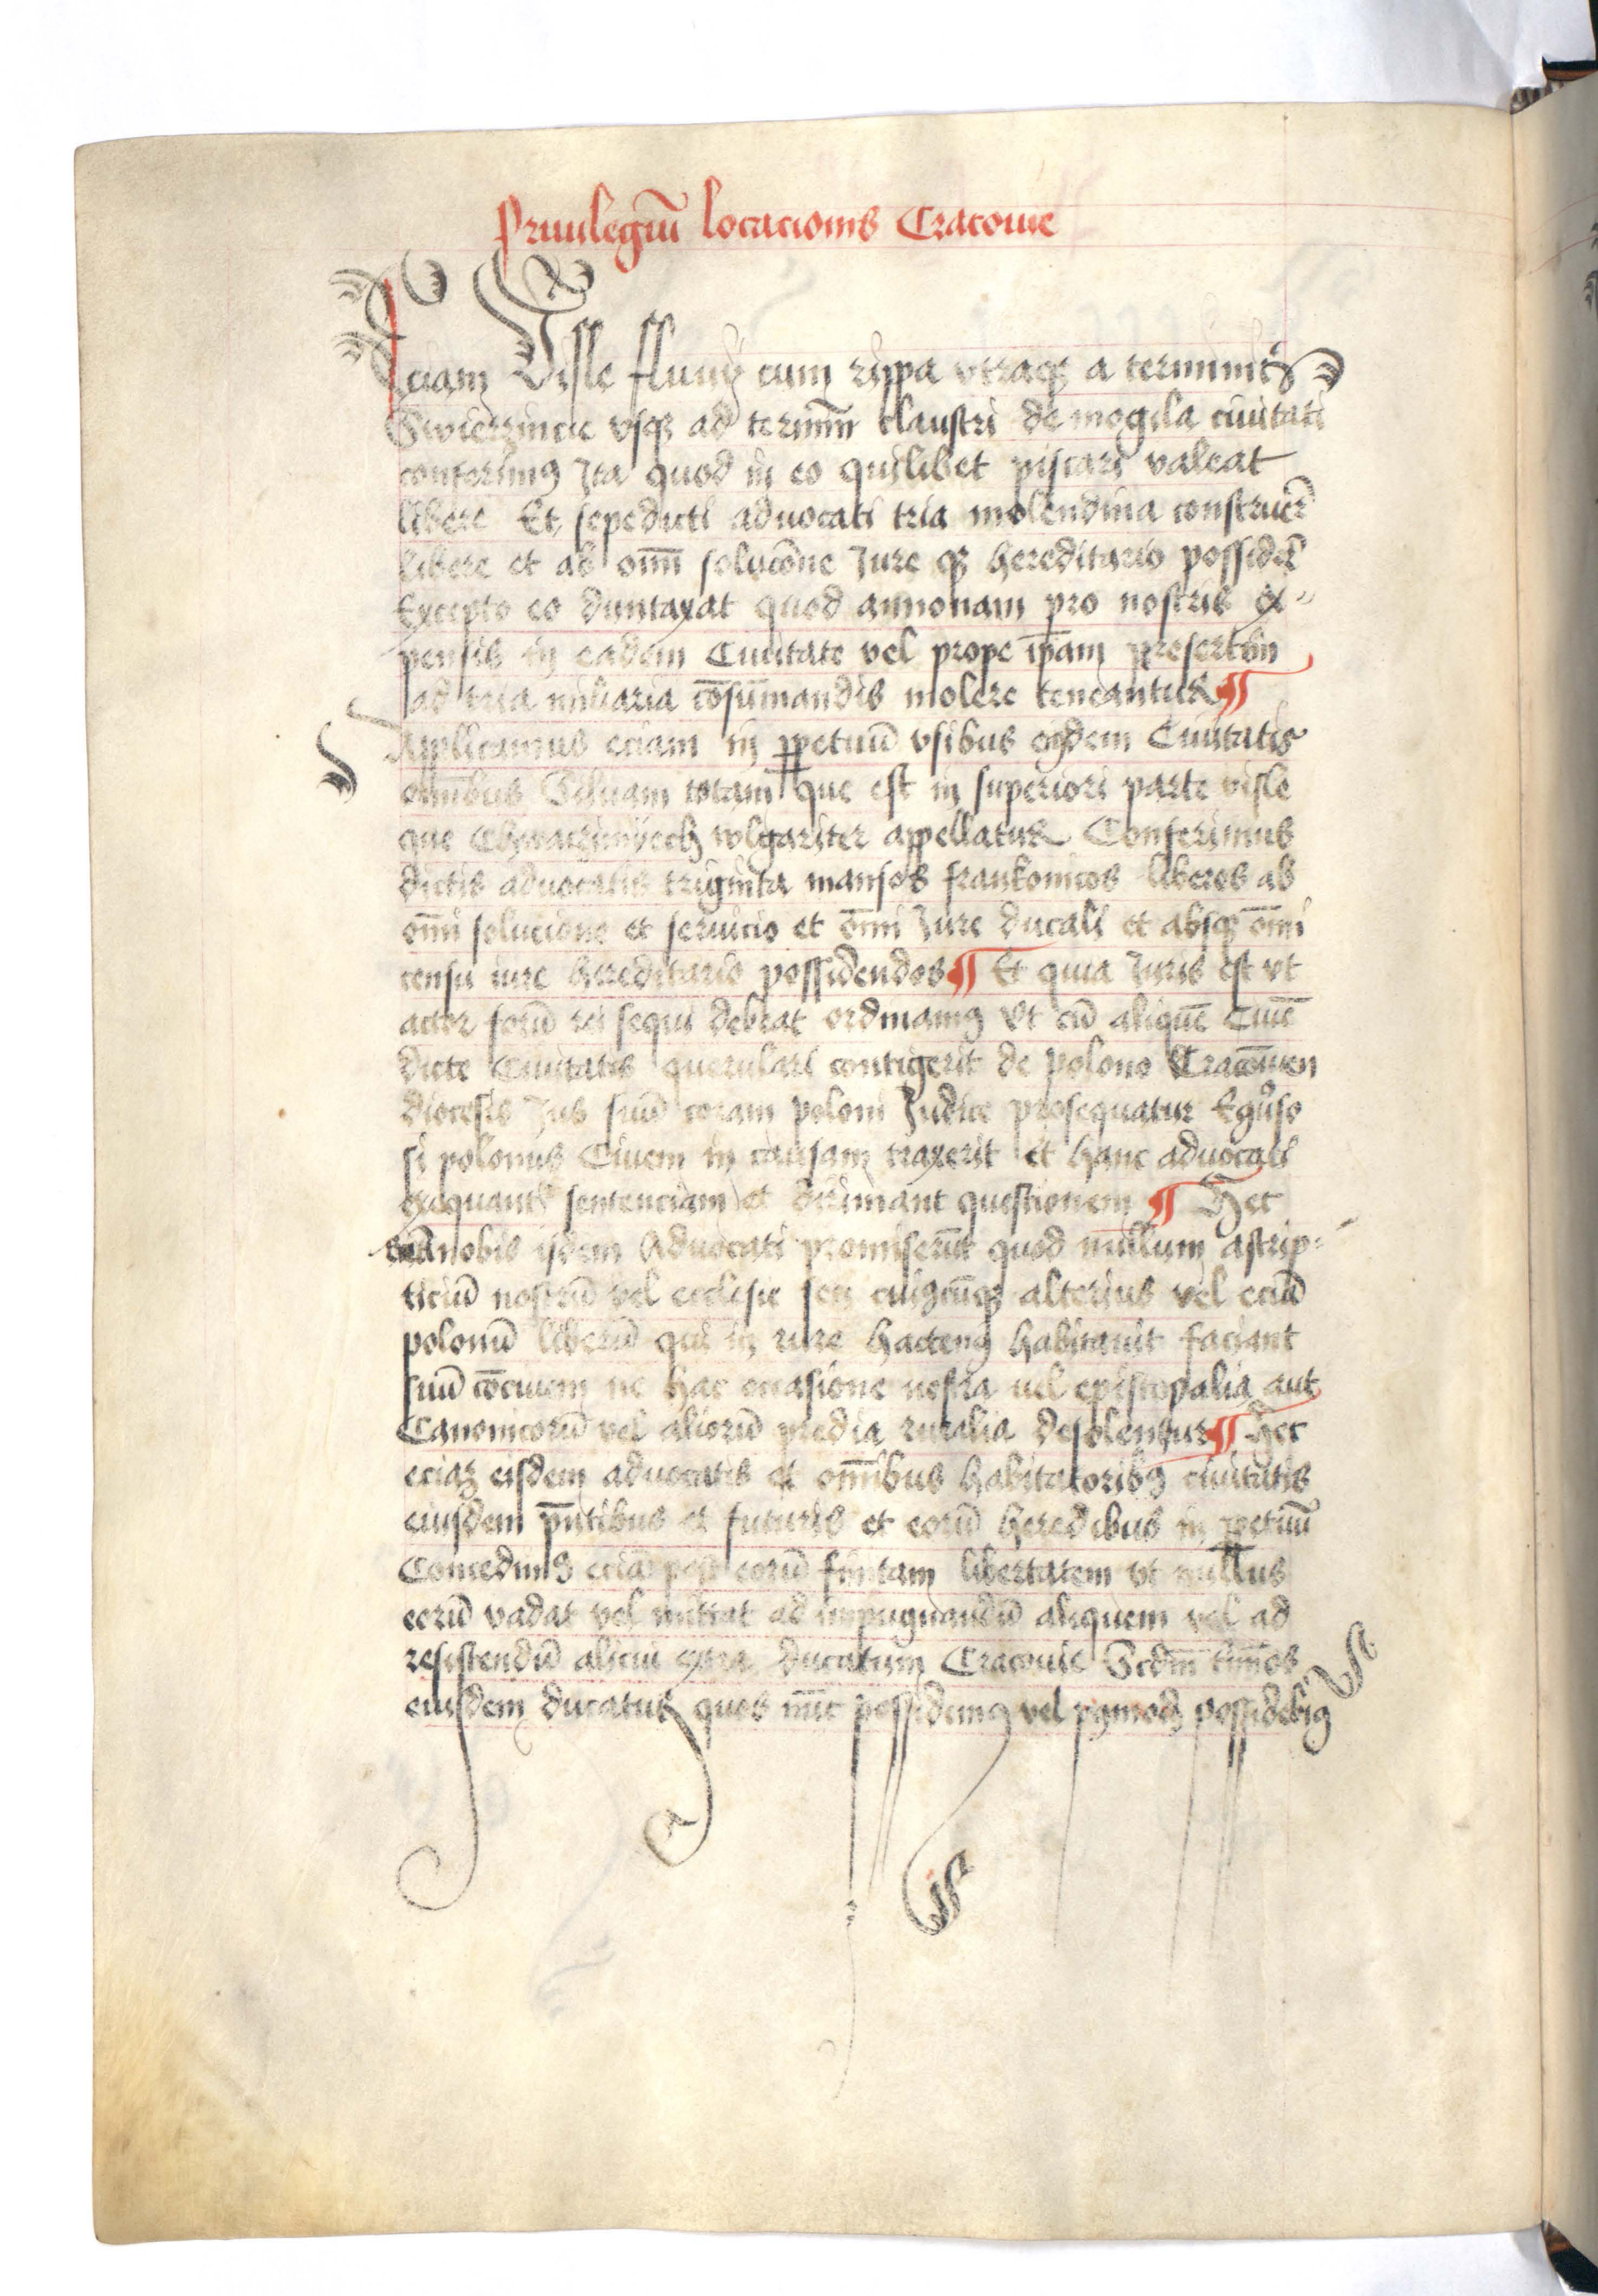 Priuilegiū locacionis Cracouie
eciam Visle fluuij cum rippa vtraqꝫ a terminis
Swierzincie vsqꝫ ad terminū claustri de mogila ciuitati
conferimꝰ Ita quod in eo quilibet piscari valeat
libere Et sepedicti aduocati tria molendina construēr
libere et ab om̄i soluc̄one Jure qꝫ hereditario possidēr
Excepto eo duntaxat quod annonam pro nostris ex-
pensis in eadem Ciuitate vel prope ip̄am presertim
ad tria miliaria cōsum̄mandis molere teneantur ¶
Applicamus eciam in ꝑpetuū vsibus eiusdem Ciuitatis
omībus Siluam totam que est in superiori parte visle
que Chwaczimyech wlgariter appellatur Conferimus
dictis aduocatis triginta mansos frankonicos liberos ab
om̄i solucione et seruicio et om̄i Jure ducali et absqꝫ om̄i
censu iure hereditario possidendos ¶ Et quia Juris est vt
actor forū rei sequi debeat ordinamꝰ Vt cū aliquē Ciuē
dicte Ciuitatis querulari contigerit de polono Cracouien
diocesis Jus suū coram poloni Judice prosequatur Eꝯuso
si polonus Ciuem in causam traxerit et hanc aduocati
exequant sentenciam et dirimant questionem ¶ Hec
nobis ijdem Aduocati promiserūt quod nullum astrip-
ticiū nostrū vel ecclesie seu cuiꝰcūqꝫ alterius vel eciā
polonū liberū qui in rure hactenꝰ habitauit faciant
suū cōciuem ne hac occasione nostra uel episcopalia aut
Canonicorū vel aliorū predia ruralia desolentur ¶ Hec
eciaꝫ eisdem aduocatis et om̄ibus habitatoribꝰ ciuitatis
eiusdem p̄ntibus et futuris et eorū heredibus in ꝑpetuū
Concedimꝰ eciā post eorū finitam libertatem vt nullus
eorū vadat vel mittat ad impugnandū aliquem vel ad
resistendū alicui extra ducatum Cracouie Scdm̄ tīmos
eiusdem ducatus quos nūc possidemꝰ vel possidebimꝰ